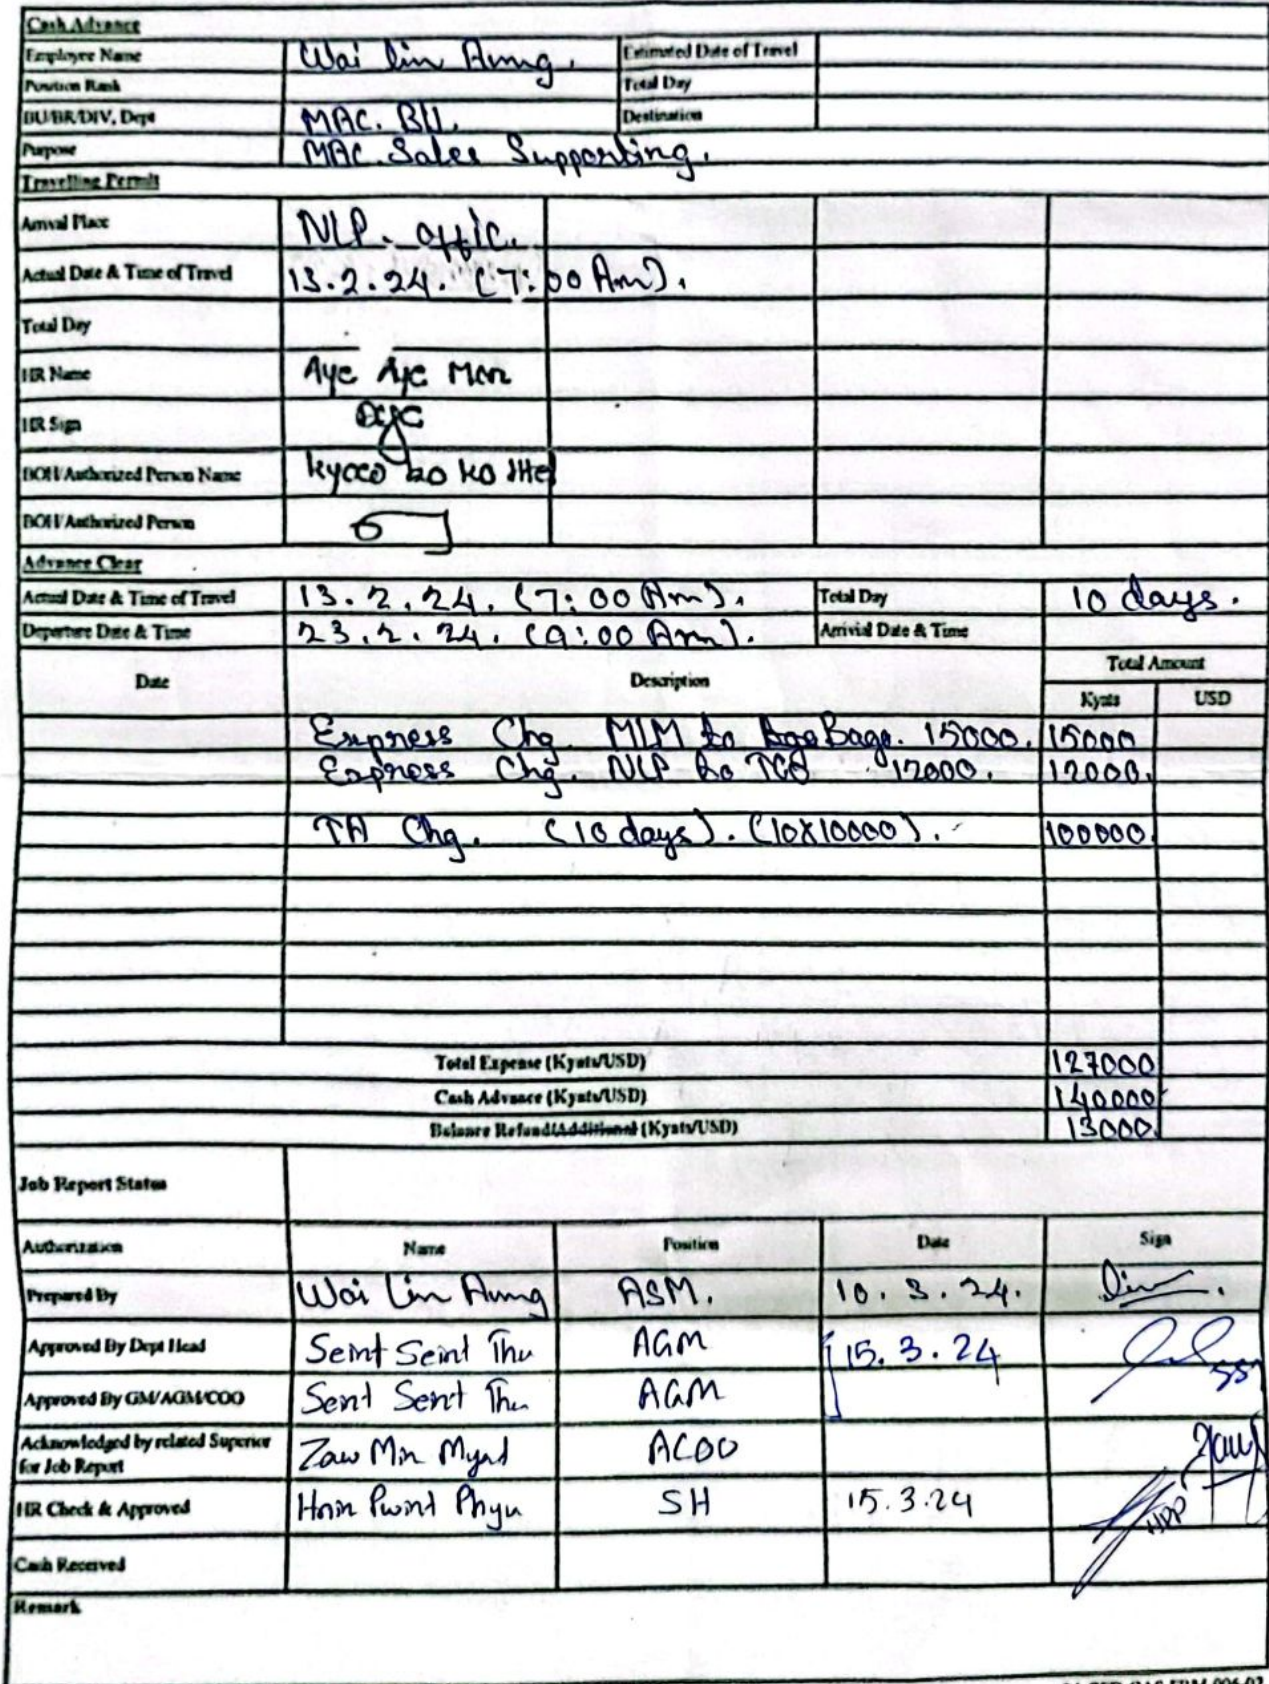 Cash Advance
Employee Name Wai Lin Aung. Estimated Date of Travel
Position Rank Total Day
BU/BR/DIV, Dept MAC. BU. Destination
Purpose MAC. Sales Supporting.
Travelling Permit
Arrival Place NLP. offic.
Actual Date & Time of Travel 13.2.24. (7:00 Am).
Total Day
HR Name Aye Aye Mon
HR Sign
BOH/Authorized Person Name Ko Ko
BOH/Authorized Person
Advance Clear
Actual Date & Time of Travel 13.2.24. (7:00 Am). Total Day 10 days.
Departure Date & Time 23.2.24. (9:00 Am). Arrivial Date & Time
Date Description Total Amount
Kyats USD
Express Chg. MLM to Bago. 15000. 15000
Express Chg NLP to TGO 12000. 12000.
TA Chg. (10 days). (10x10000). 100000.
Total Expense (Kyats/USD) 127000
Cash Advance (Kyats/USD) 140000
Balance Refund/Additional (Kyats/USD) 13000.
Job Report Status
Authorization Name Position Date Sign
Prepared By Wai Lin Aung ASM. 10.3.24. Lin
Approved By Dept Head Seint Seint Thu AGM 15.3.24
Approved By GM/AGM/COO Seint Seint Thu AGM
Acknowledged by related Superior Zaw Min ACOO
for Job Report
HR Check & Approved Hnin Pwint Phyu SH 15.3.24
Cash Received
Remark